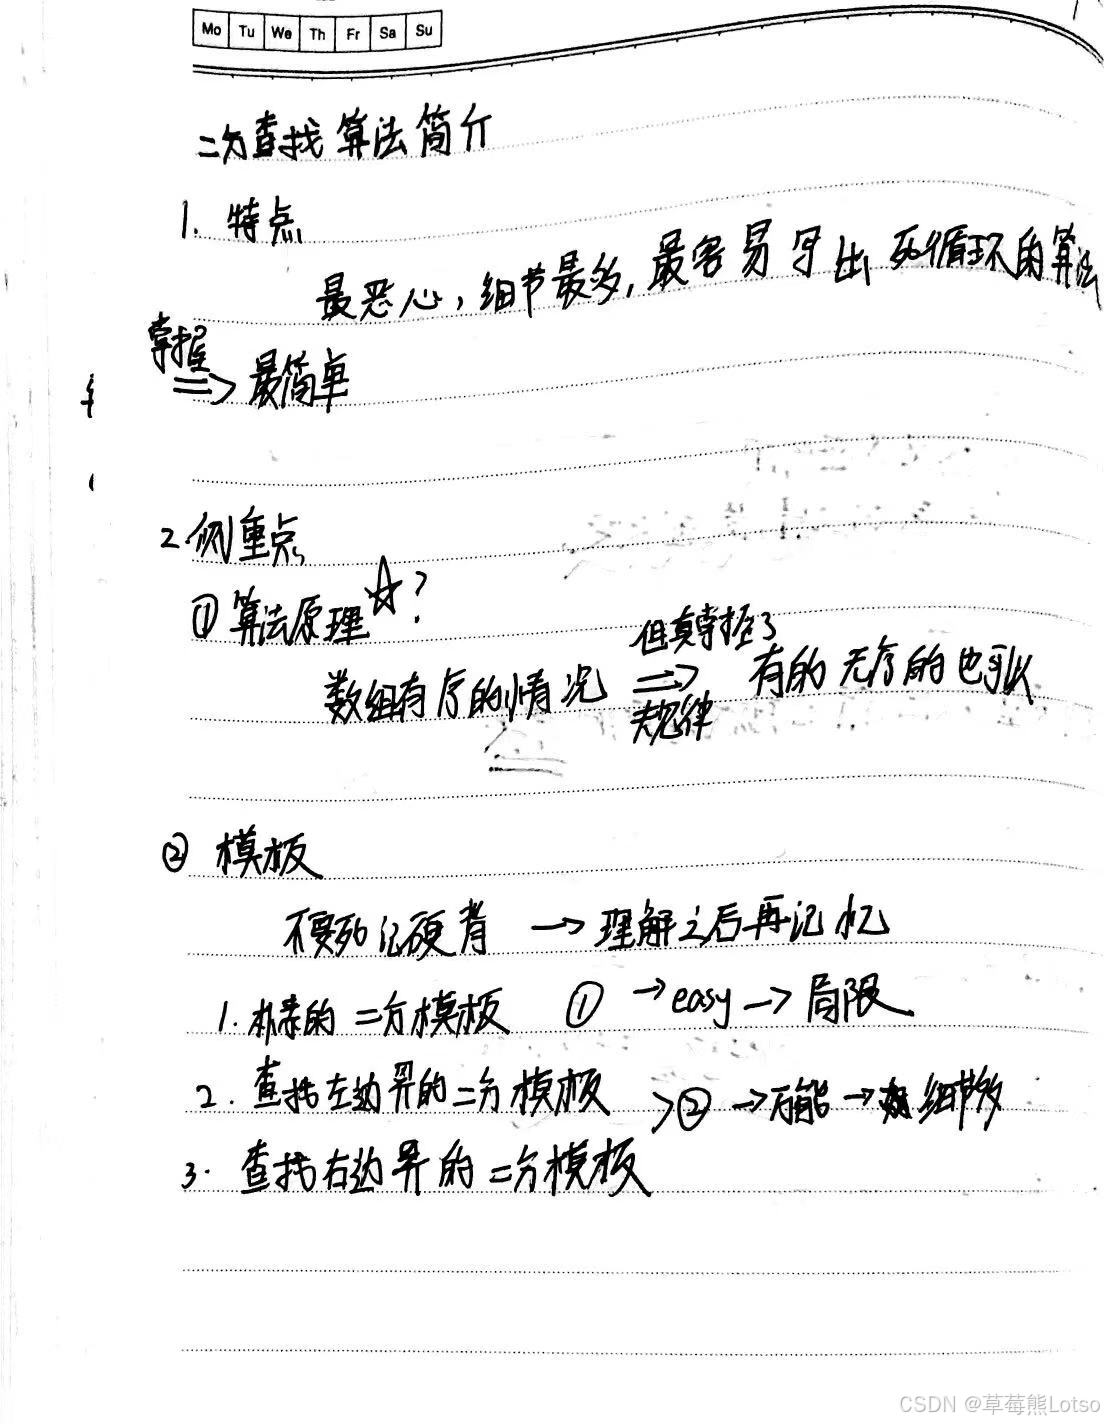 Mo Tu We Th Fr Sa Su
二分查找算法简介
1. 特点
最恶心,细节最多,最容易写出死循环的算法
掌握
⇒ 最简单
2.侧重点
① 算法原理☆?
数组有序的情况 ⇒ 有的无序的也可以
但真掌握了
规律
② 模板
不要死记硬背 → 理解之后再记忆
1. 朴素的二分模板 ① → easy → 局限
2. 查找左边界的二分模板 > ② → 万能 → 细节多
3. 查找右边界的二分模板
CSDN @草莓熊Lotso